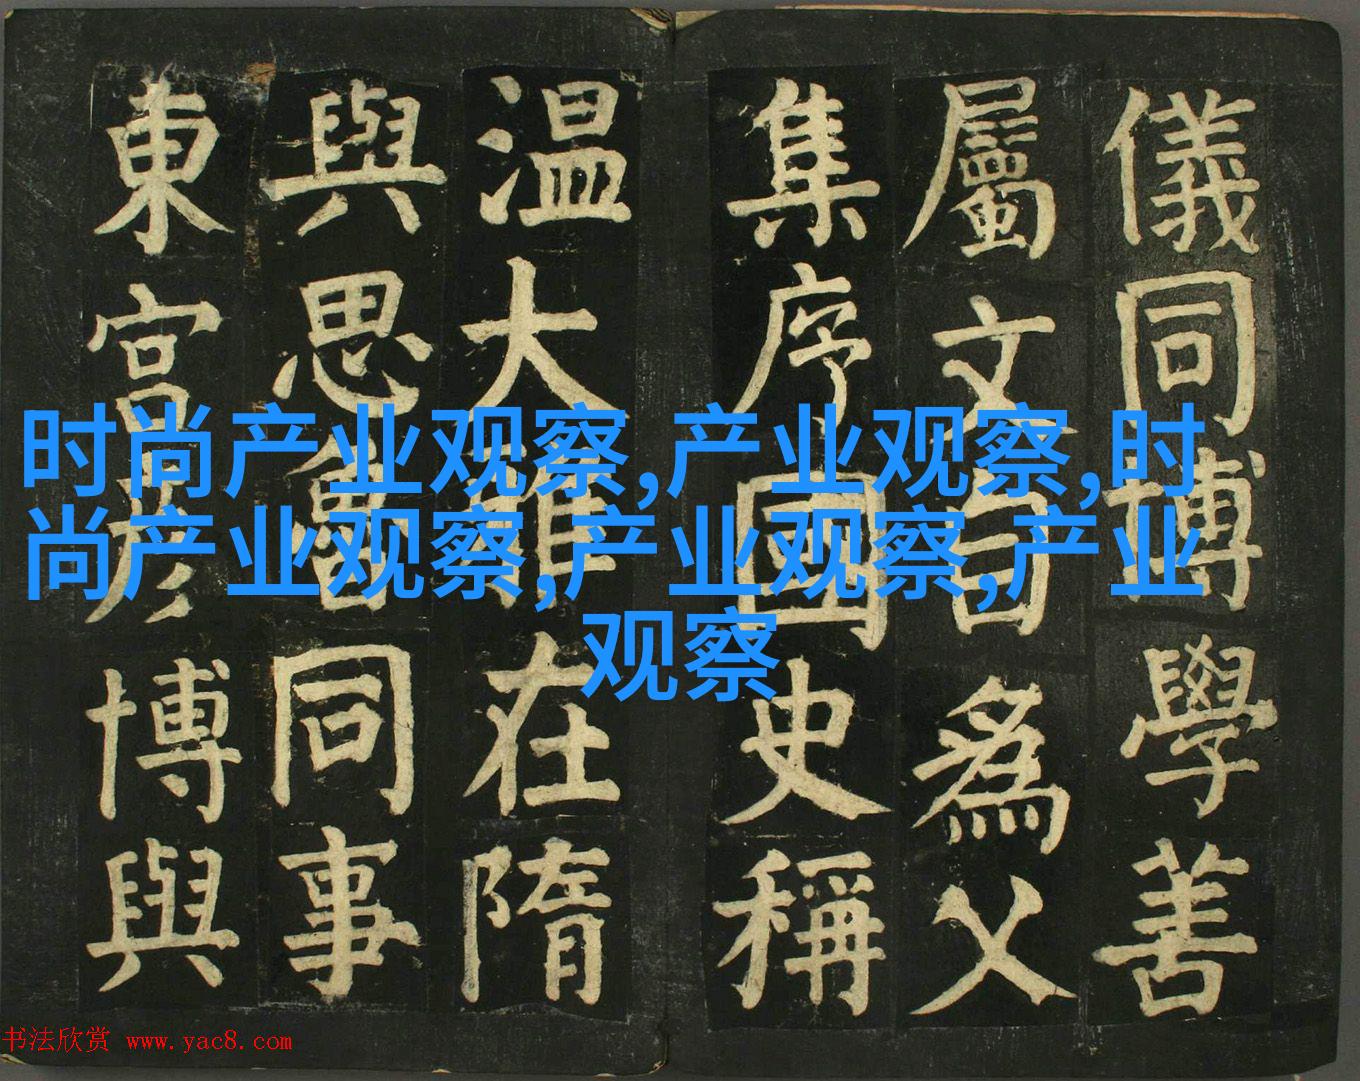 儀同博學善
屬文自為父
集序國史稱
温大雅在隋
與思魯同事
東宮彥博與
时尚产业观察,产业观察,时
尚产业观察,产业观察,产业
观察
书法欣赏 www.yac8.com